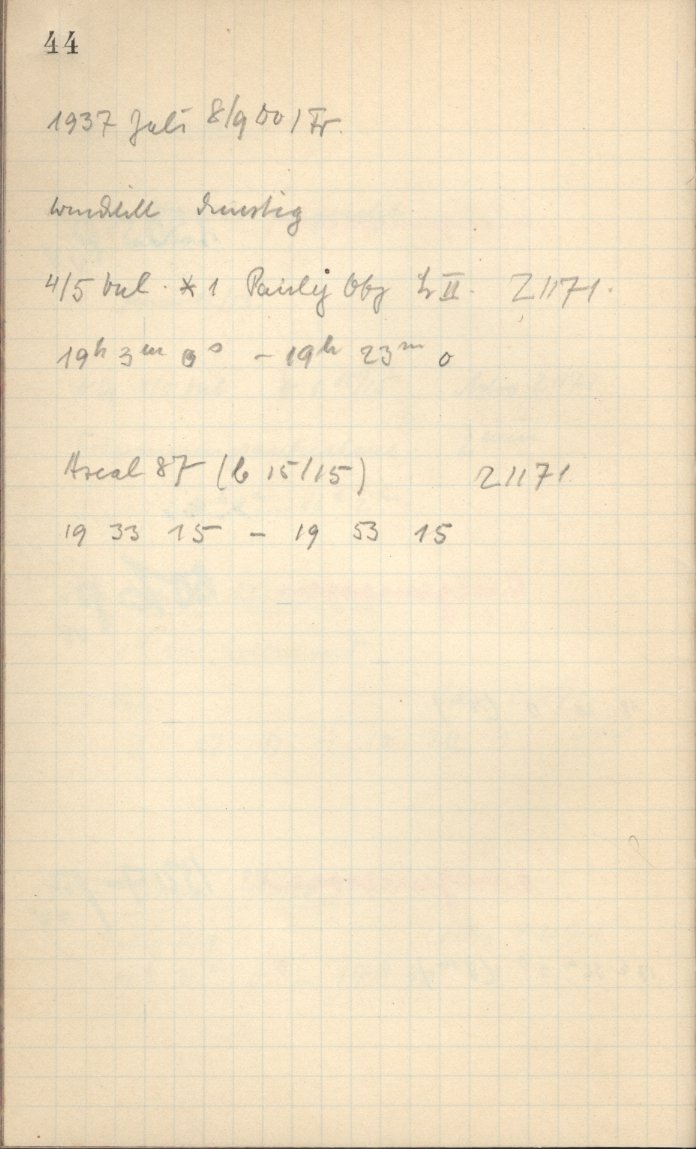 44
1937 Juli 8/9 Do/Fr.
windstill dunstig
4/5 Vul. * 1 Pauly Obj II. Z 1171.
19h 3m 0s – 19h 23m 0
Areal 87 (b 15/15) Z 1171
19 33 15 – 19 53 15